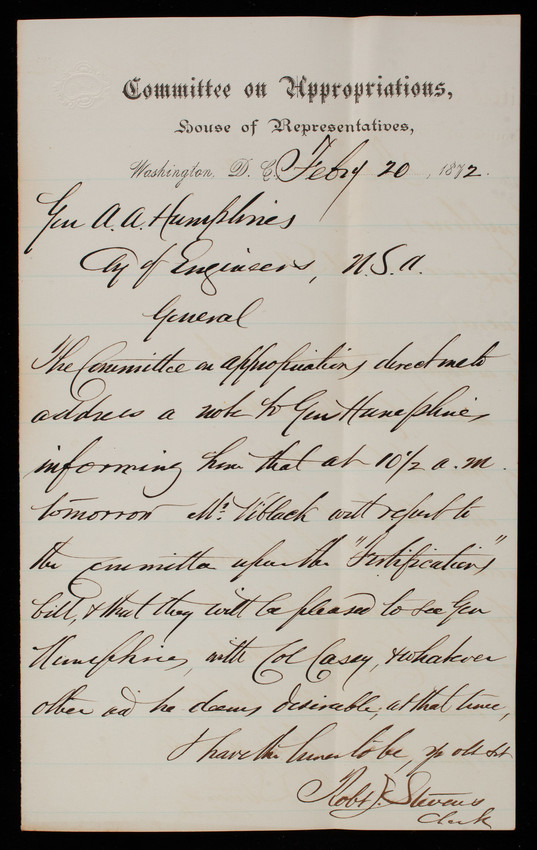 Committee on Appropriations,
House of Representatives,
Washington, D. C. Feby 20, 1872.
Gen A. A. Humphries
of Engineers, U.S.A.
General
The Committee on appropriations direct me to
address a note to Gen Humphries
informing him that at 10 1/2 a.m.
tomorrow Mr. Niblack will report to
the committee upon the "Fortifications"
bill, & that they will be pleased to see Gen
Humphries, with Col Casey, & whatever
other aid he deems desirable, at that time,
I have the honor to be, yr obt svt
Robt J. Stevens
Clerk